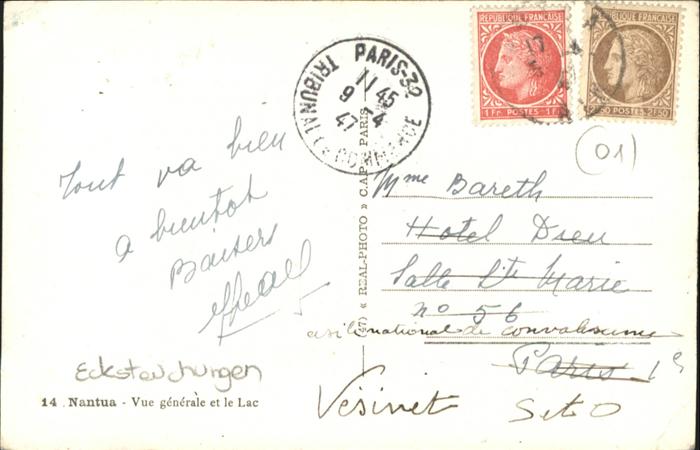 RÉPUBLIQUE FRANÇAISE
1 Fr. POSTES 1 Fr.
RÉPUBLIQUE FRANÇAISE
2F50 POSTES 2F50
PARIS-39
11 45
9 - 4
47
TRIBUNAL COMMERCE
(01)
Tout va bien
a bientot
Baisers
(47) « REAL-PHOTO » C.A.P. PARIS
Mme Bareth
Hotel Dieu
Salle Ste Marie
no 56
asile national de convalescence
Paris 1e
Vésinet S et O
Eckstauchungen
14 . Nantua - Vue générale et le Lac